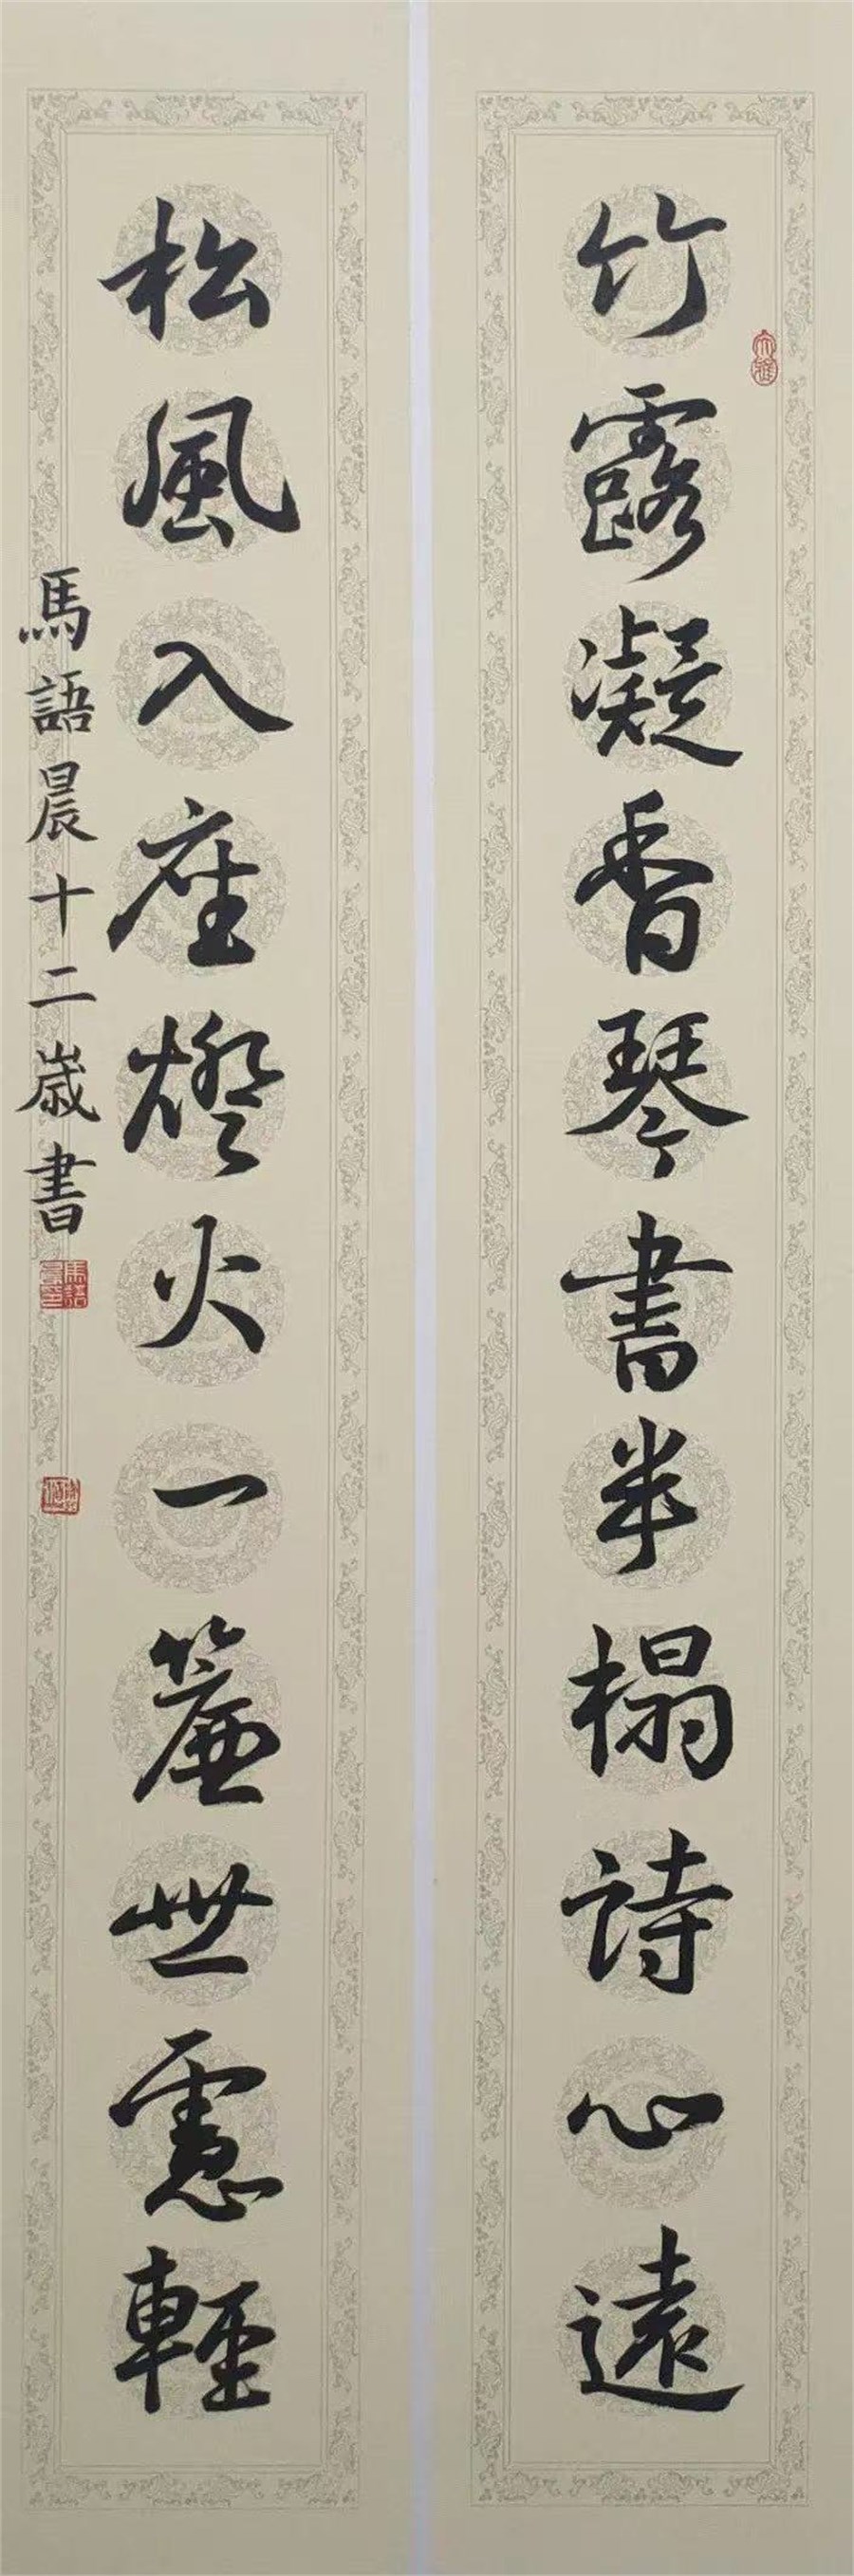 竹露凝香琴書半榻詩心遠
松風入座燈火一簾世慮輕
馬語晨十二歲書